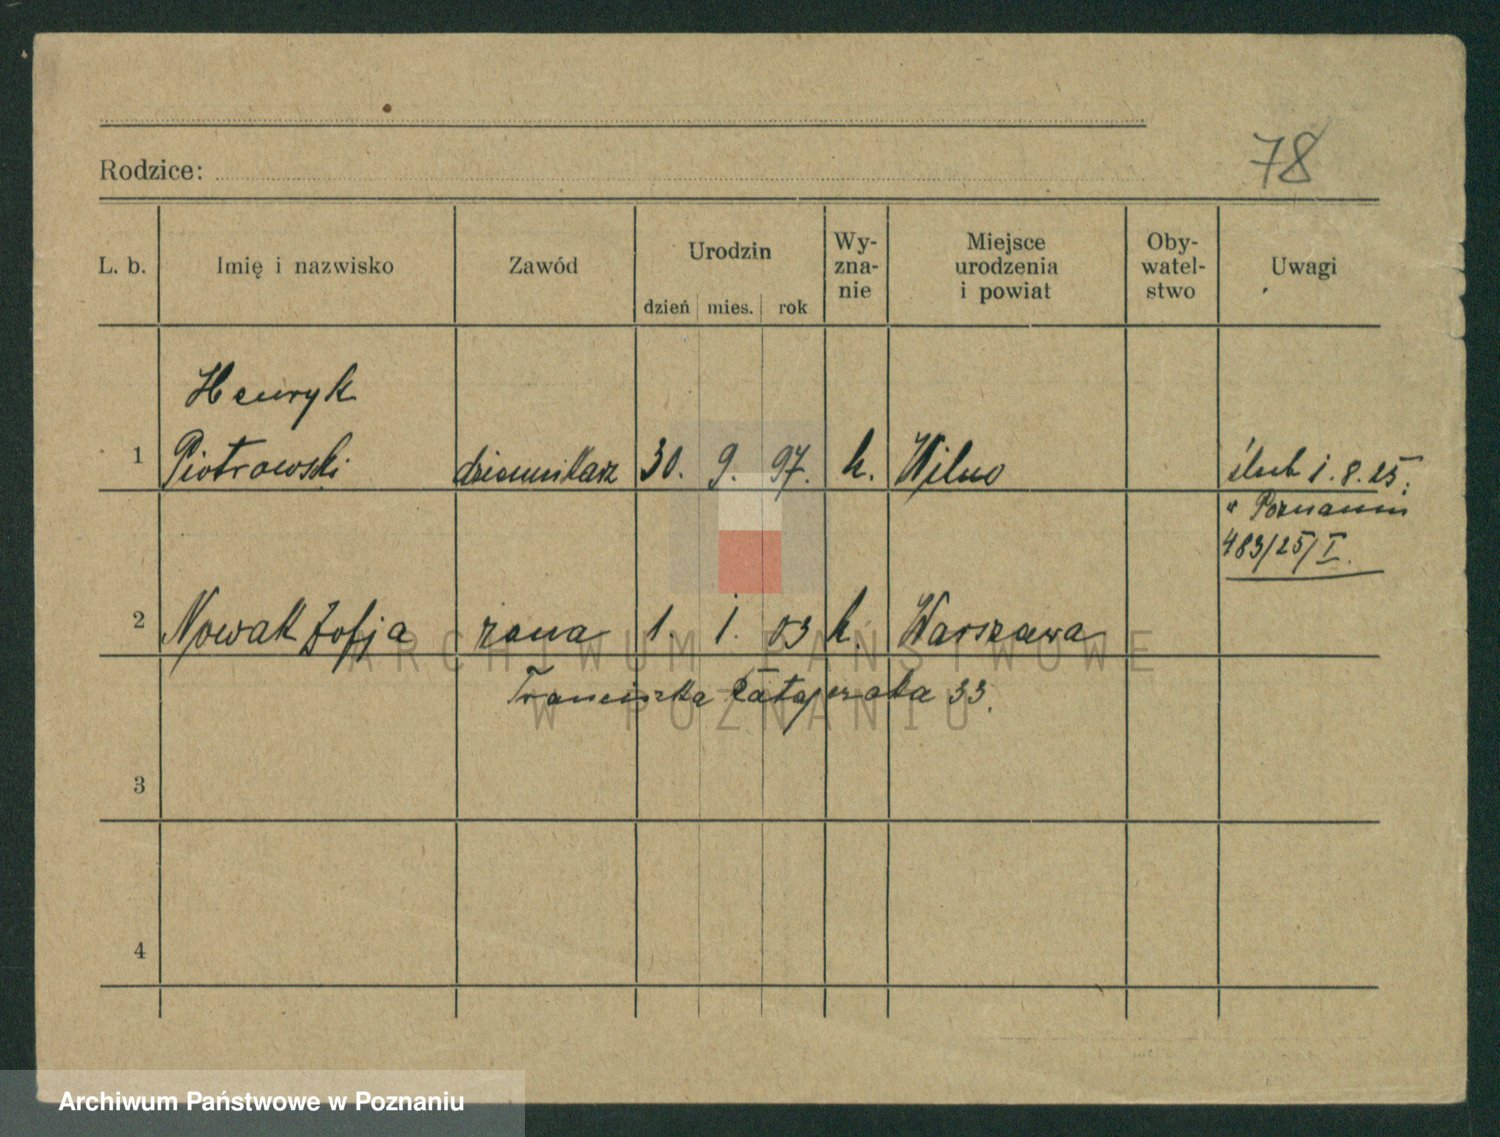 78
Rodzice:
L. b. Imię i nazwisko Zawód Urodzin dzień mies. rok Wy-zna-nie Miejsce urodzenia i powiat Oby-watel-stwo Uwagi
Henryk
1 Piotrowski dziennikarz 30. 9. 97. k. Wilno ślub 1. 8. 25.
w Poznaniu
483/25/I.
2 Nowak Zofja żona 1. 1. 03 k. Warszawa
ARCHIWUM PAŃSTWOWE
Franciszka Ratajczaka 33.
W POZNANIU
3
4
Archiwum Państwowe w Poznaniu